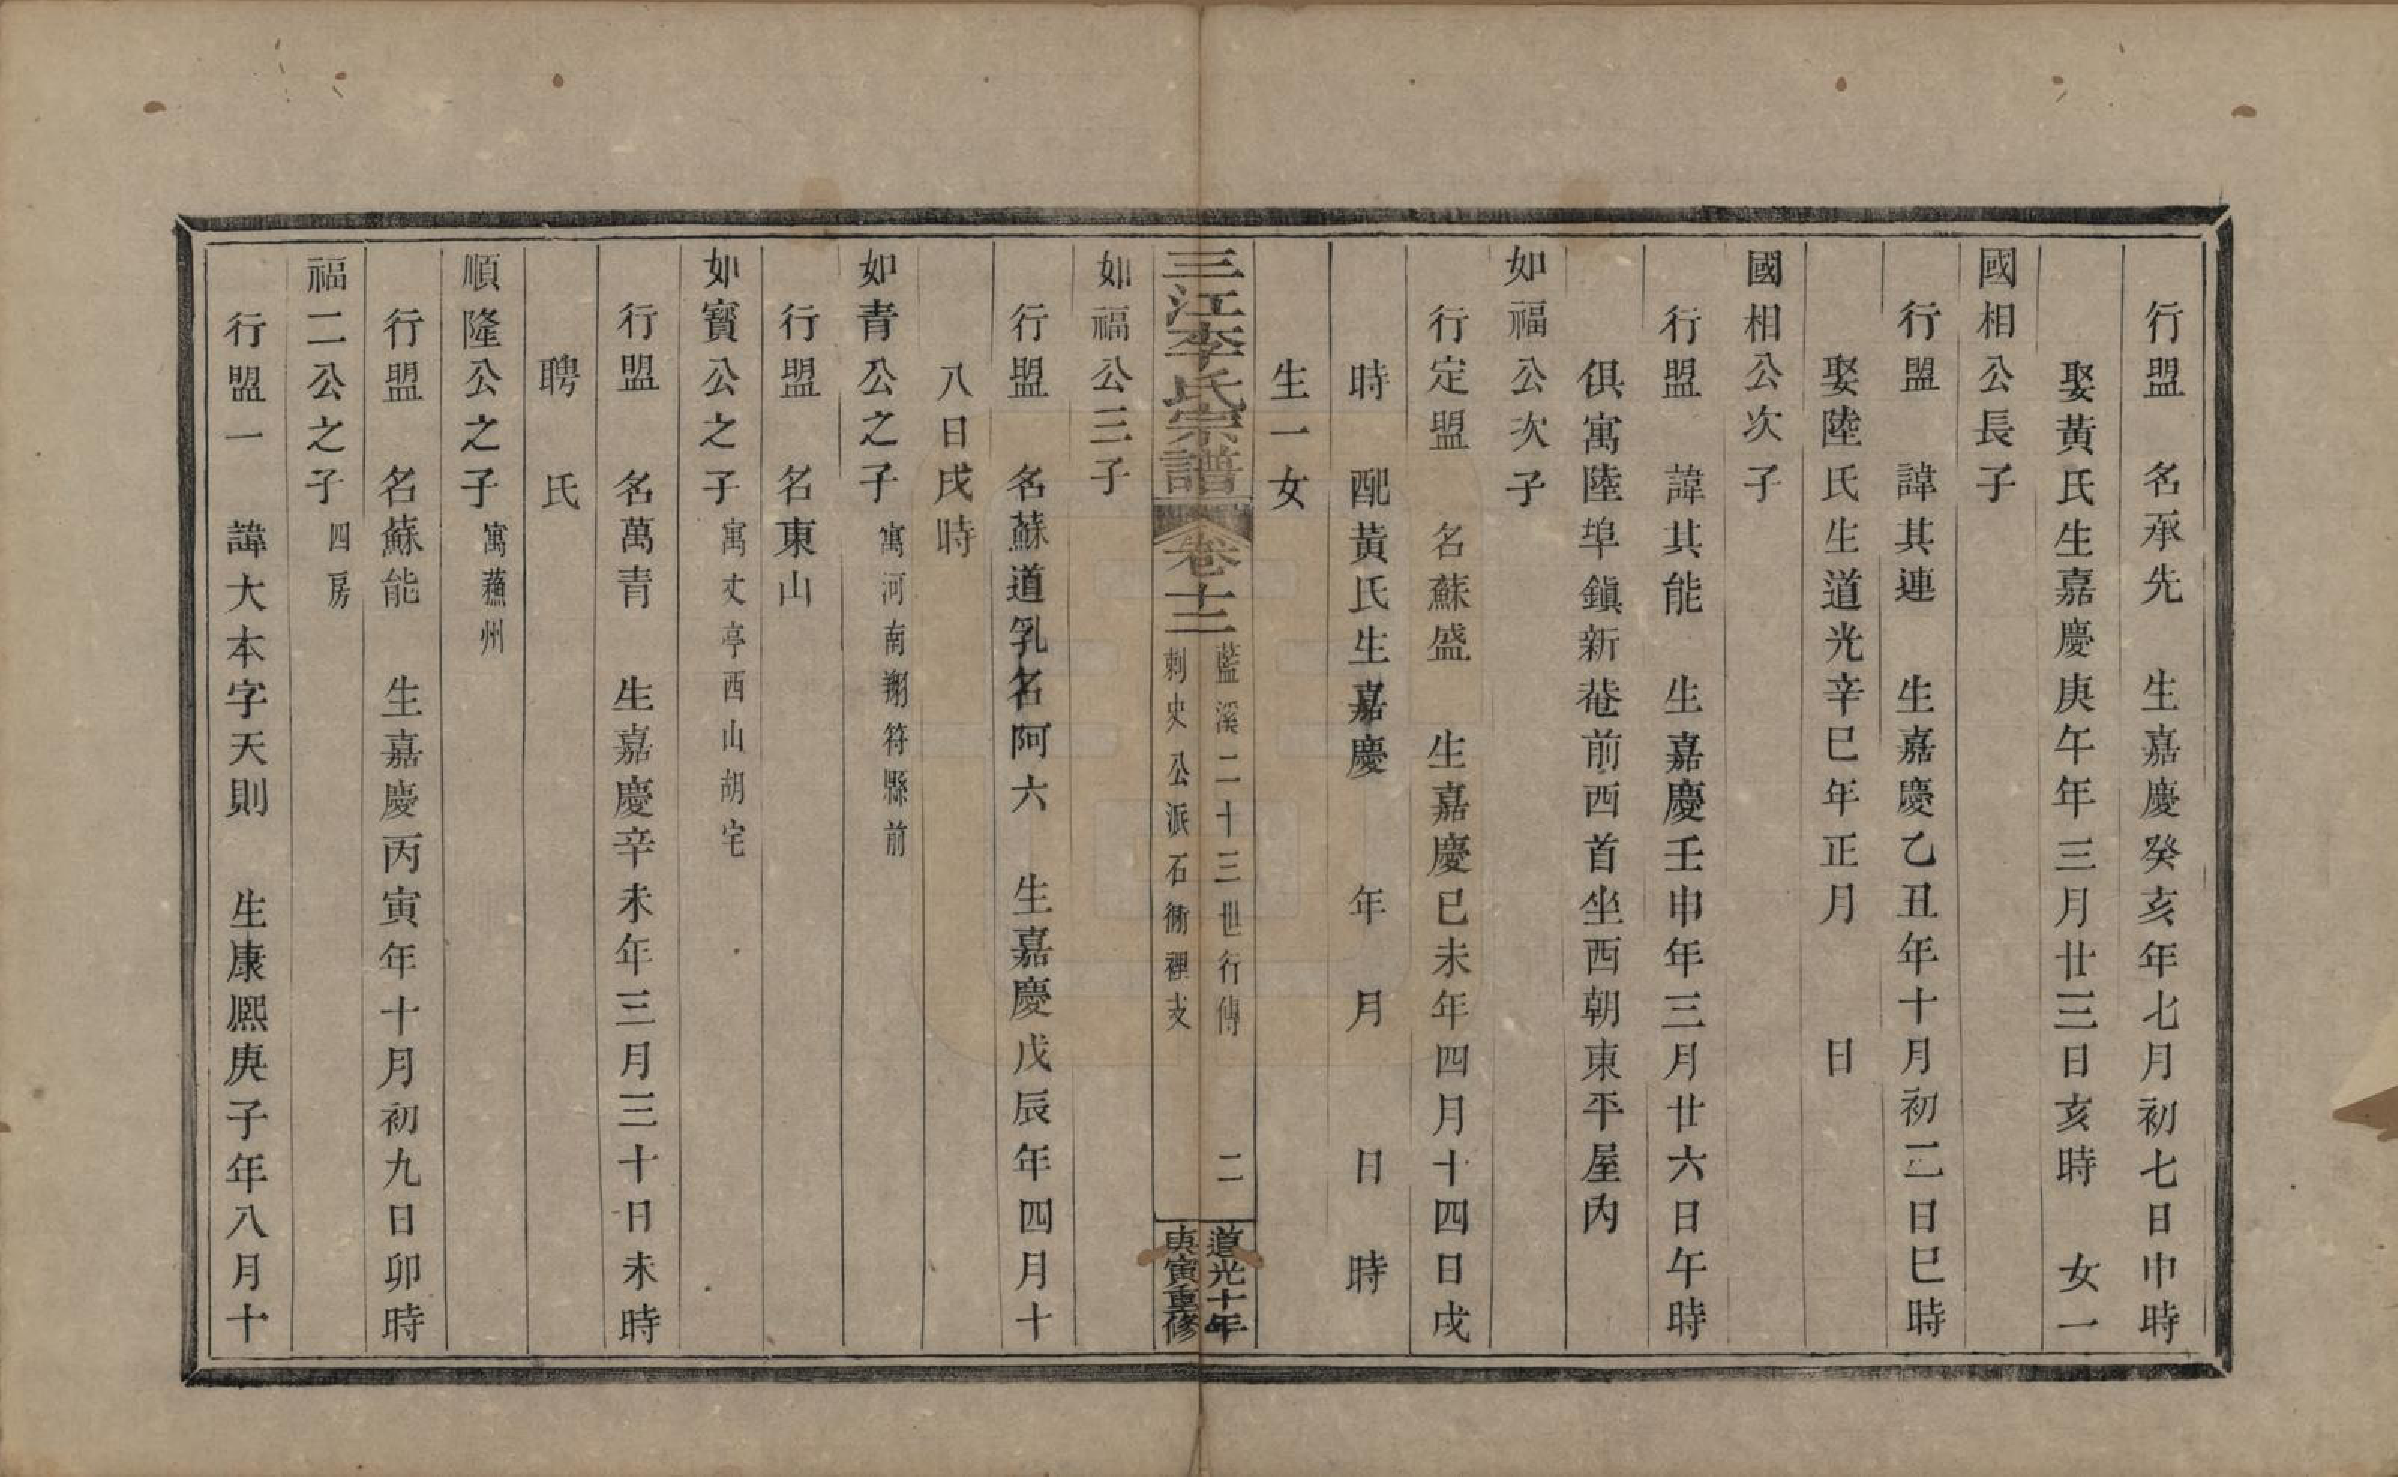 行盟　名承先　生嘉慶癸亥年七月初七日申時
娶黃氏生嘉慶庚午年三月廿三日亥時　女一
國相公長子
行盟　諱其連　生嘉慶乙丑年十月初二日巳時
娶陸氏生道光辛巳年正月　　日
國相公次子
行盟　諱其能　生嘉慶壬申年三月廿六日午時
俱寓陸埠鎭新菴前西首坐西朝東平屋內
如福公次子
行定盟　名蘇盛　生嘉慶已未年四月十四日戌
時　配黃氏生嘉慶　　年　月　　日　時
生一女
三江李氏宗譜
卷十二
藍溪二十三世行傳　　二
刺史公派石衕裡支
道光十年
庚寅重修
如福公三子
行盟　名蘇道乳名阿六　生嘉慶戊辰年四月十
八日戌時
如青公之子寓河南翔符縣前
行盟　名東山
如寶公之子寓丈亭西山胡宅
行盟　名萬青　生嘉慶辛未年三月三十日未時
聘　氏
順隆公之子寓蘓州
行盟　名蘇能　生嘉慶丙寅年十月初九日卯時
福二公之子四房
行盟一　諱大本字天則　生康熙庚子年八月十